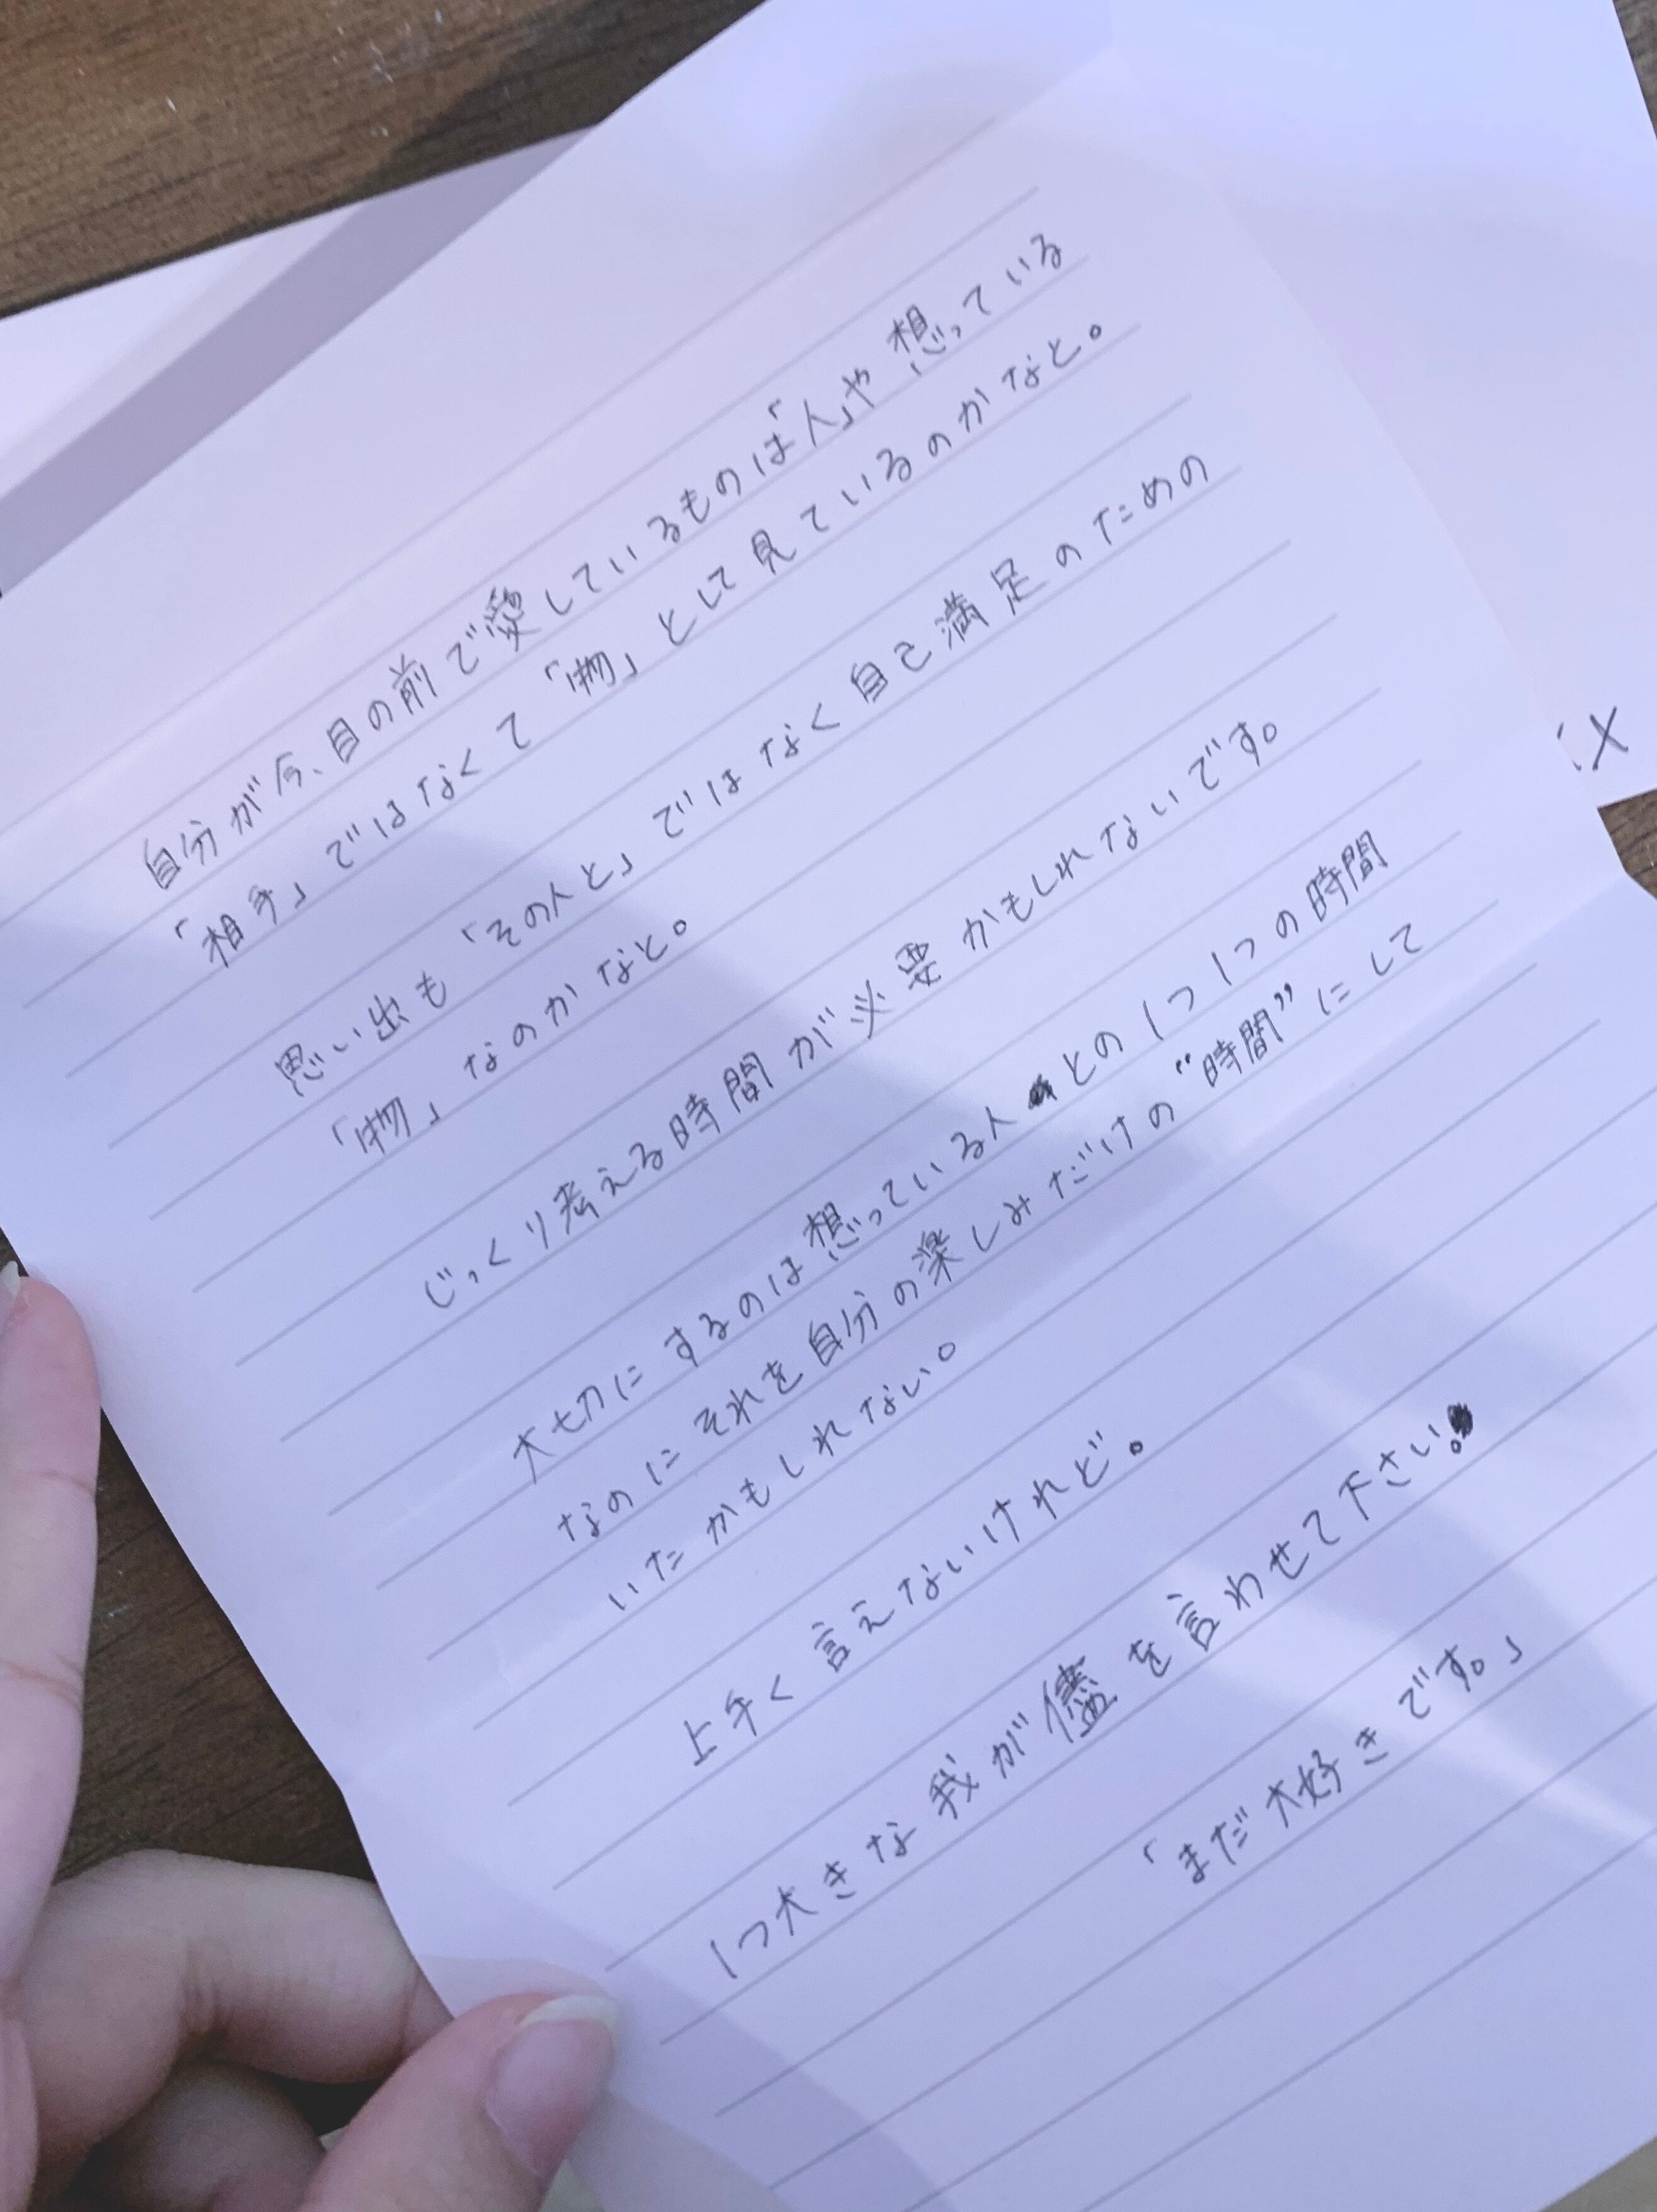 自分が今、目の前で愛しているものは「人」や想っている
「相手」ではなくて「物」として見ているのかなと。
思い出も「その人と」ではなく自己満足のための
「物」なのかなと。
じっくり考える時間が必要かもしれないです。
大切にするのは想っている人との1つ1つの時間
なのにそれを自分の楽しみだけの“時間”にして
いたかもしれない。
上手く言えないけれど。
1つ大きな我が儘を言わせて下さい。
「まだ大好きです。」